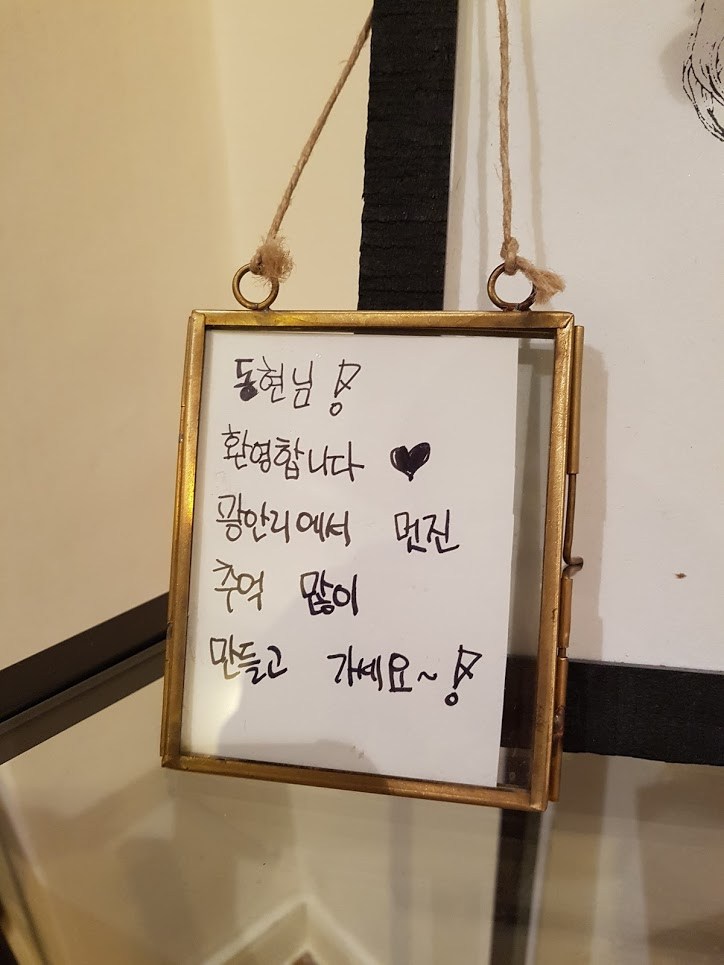 동현님!
환영합니다 ♥
광안리에서 먼진
추억 많이
만들고 가세요~!